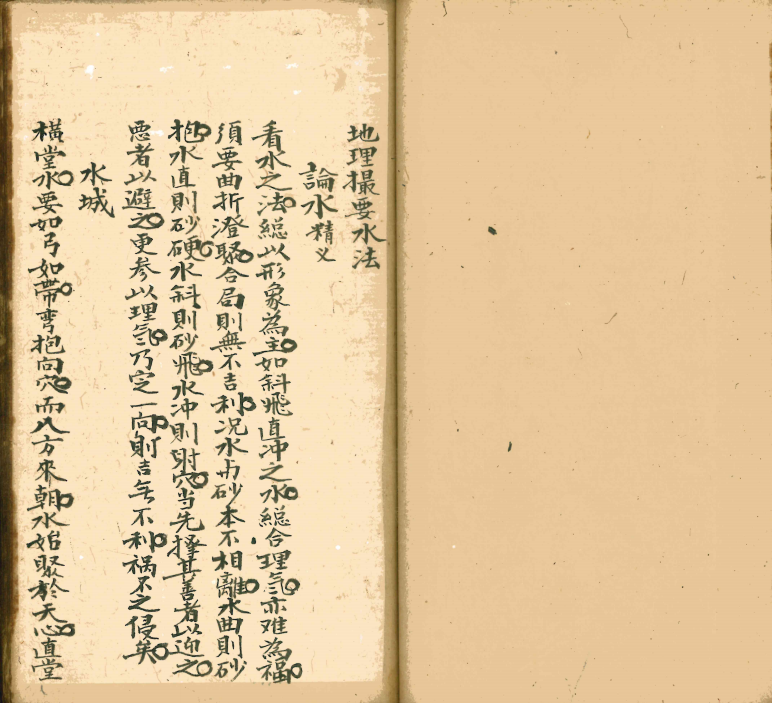 地理撮要水法
論水精义
看水之法。総以形象為主。如斜飛直冲之水。総合理気。亦难為福。
須要曲折澄聚。合局則無不吉利。况水与砂本不相離。水曲則砂
抱。水直則砂硬。水斜則砂飛。水冲則射穴。当先择其善者以迎之。
悪者以避之。更参以理気。乃定一向。則吉无不利。祸不之侵矣。
水城
横堂水。要如弓如帶。弯抱向穴。而八方來朝。水始聚於天心。直堂